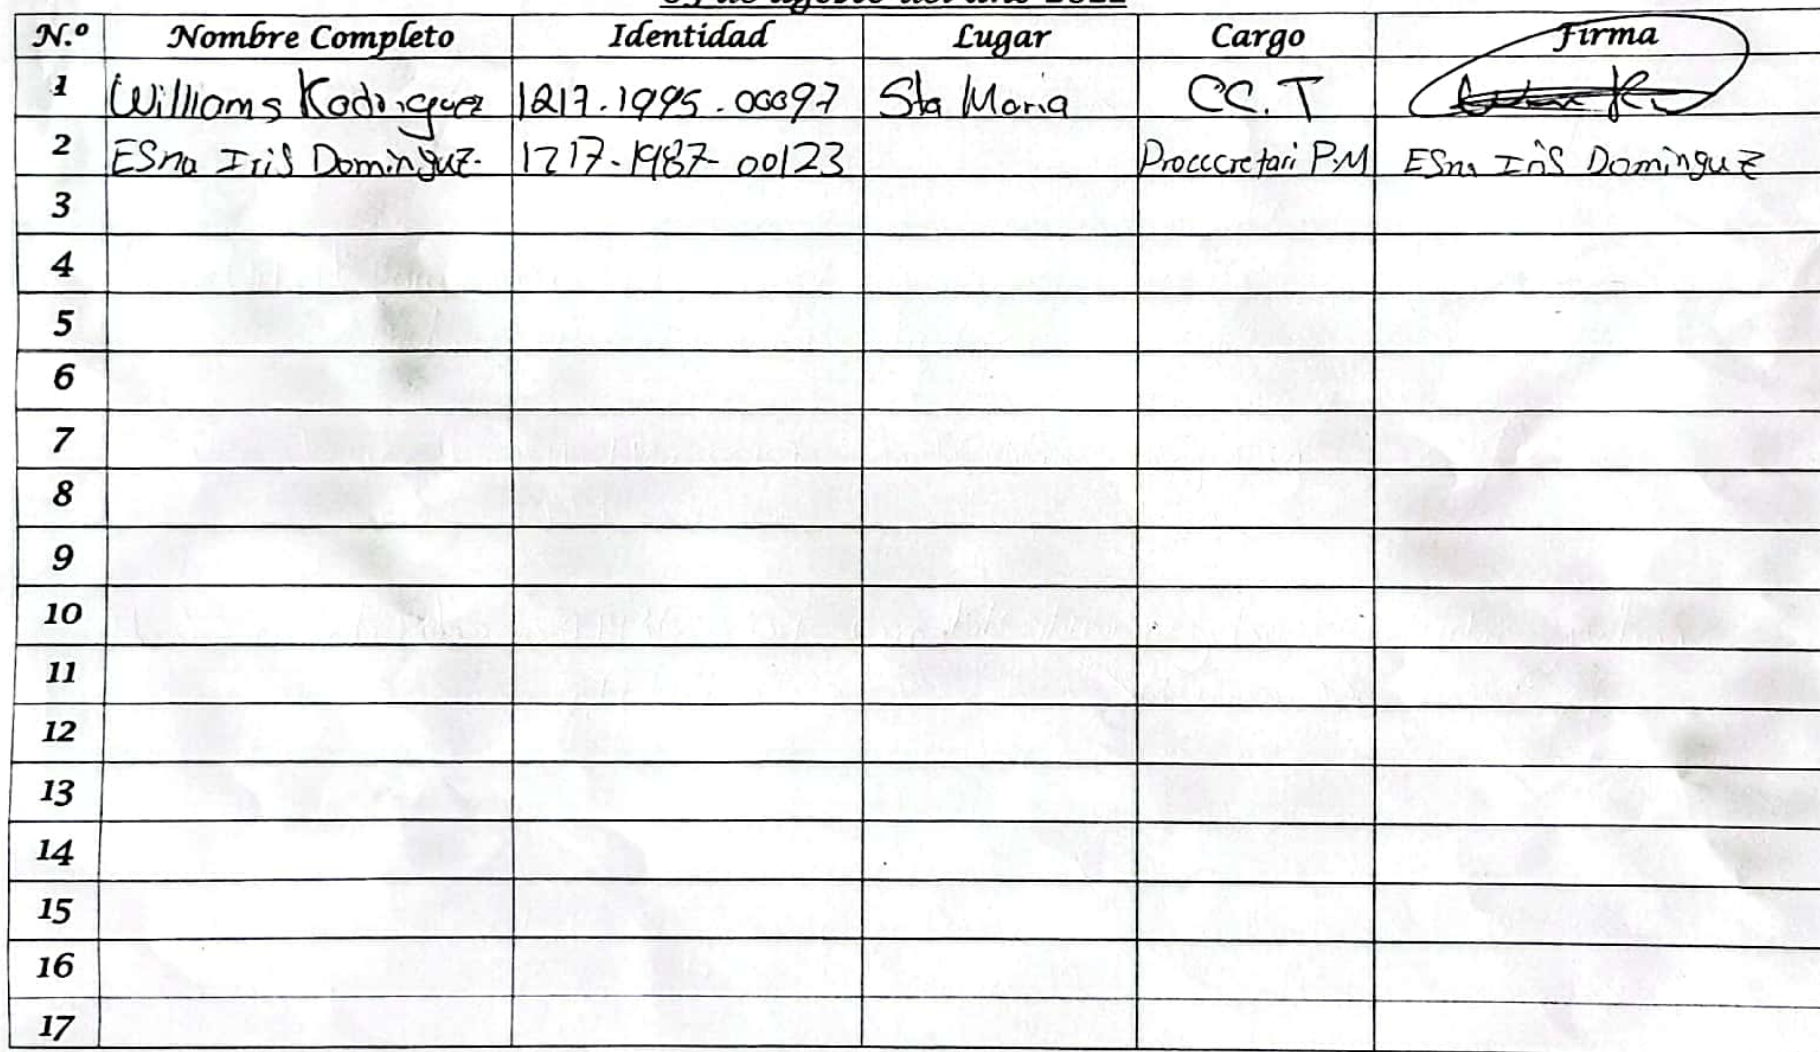 de agosto del año 2022
N.º Nombre Completo Identidad Lugar Cargo Firma
1 Williams Rodriguez 1217.1995.00097 Sta Maria CC.T
2 ESna Iris Dominguz. 1217-1987-00123 Procccretari P.M ESna Iris Dominguz
3
4
5
6
7
8
9
10
11
12
13
14
15
16
17